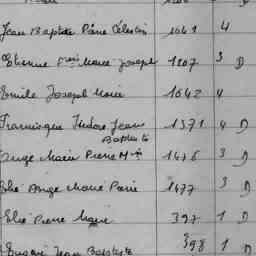 Jean Baptiste Pierre Célestin 1041 4
Etienne Frois Marie Joseph 1807 3 D
Emile Joseph Marie 1642 4
Isidore Jean 1371 4 D
Baptiste
Ange Marie Pierre M 1476 3 D
Elie Ange Marie Pierre 1477 3 D
Elie Pierre Marie 397 1 D
Eugène Jean Baptiste 398 1 D